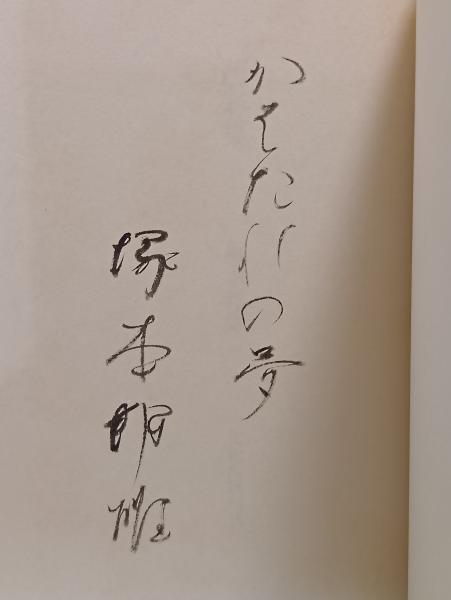 かはたれの夢
塚本邦雄